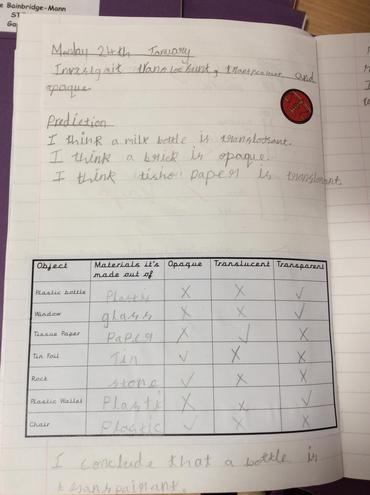 e Bainbridge-Mann
ST
Ga
Monday 24th January
Investigait translocunt, transparunt and
opaque
Prediction
I think a milk bottle is translosant.
I think a brick is opaque.
I think tisho paper is translosant
Object Materials it's made out of Opaque Translucent Transparent
Plastic bottle Plastic X X ✓
Window glass X X ✓
Tissue Paper Paper X ✓ X
Tin Foil Tin ✓ X X
Rock stone ✓ X X
Plastic Wallet Plastic X X ✓
Chair Plastic ✓ X X
I conclude that a bottle is
transpairant.